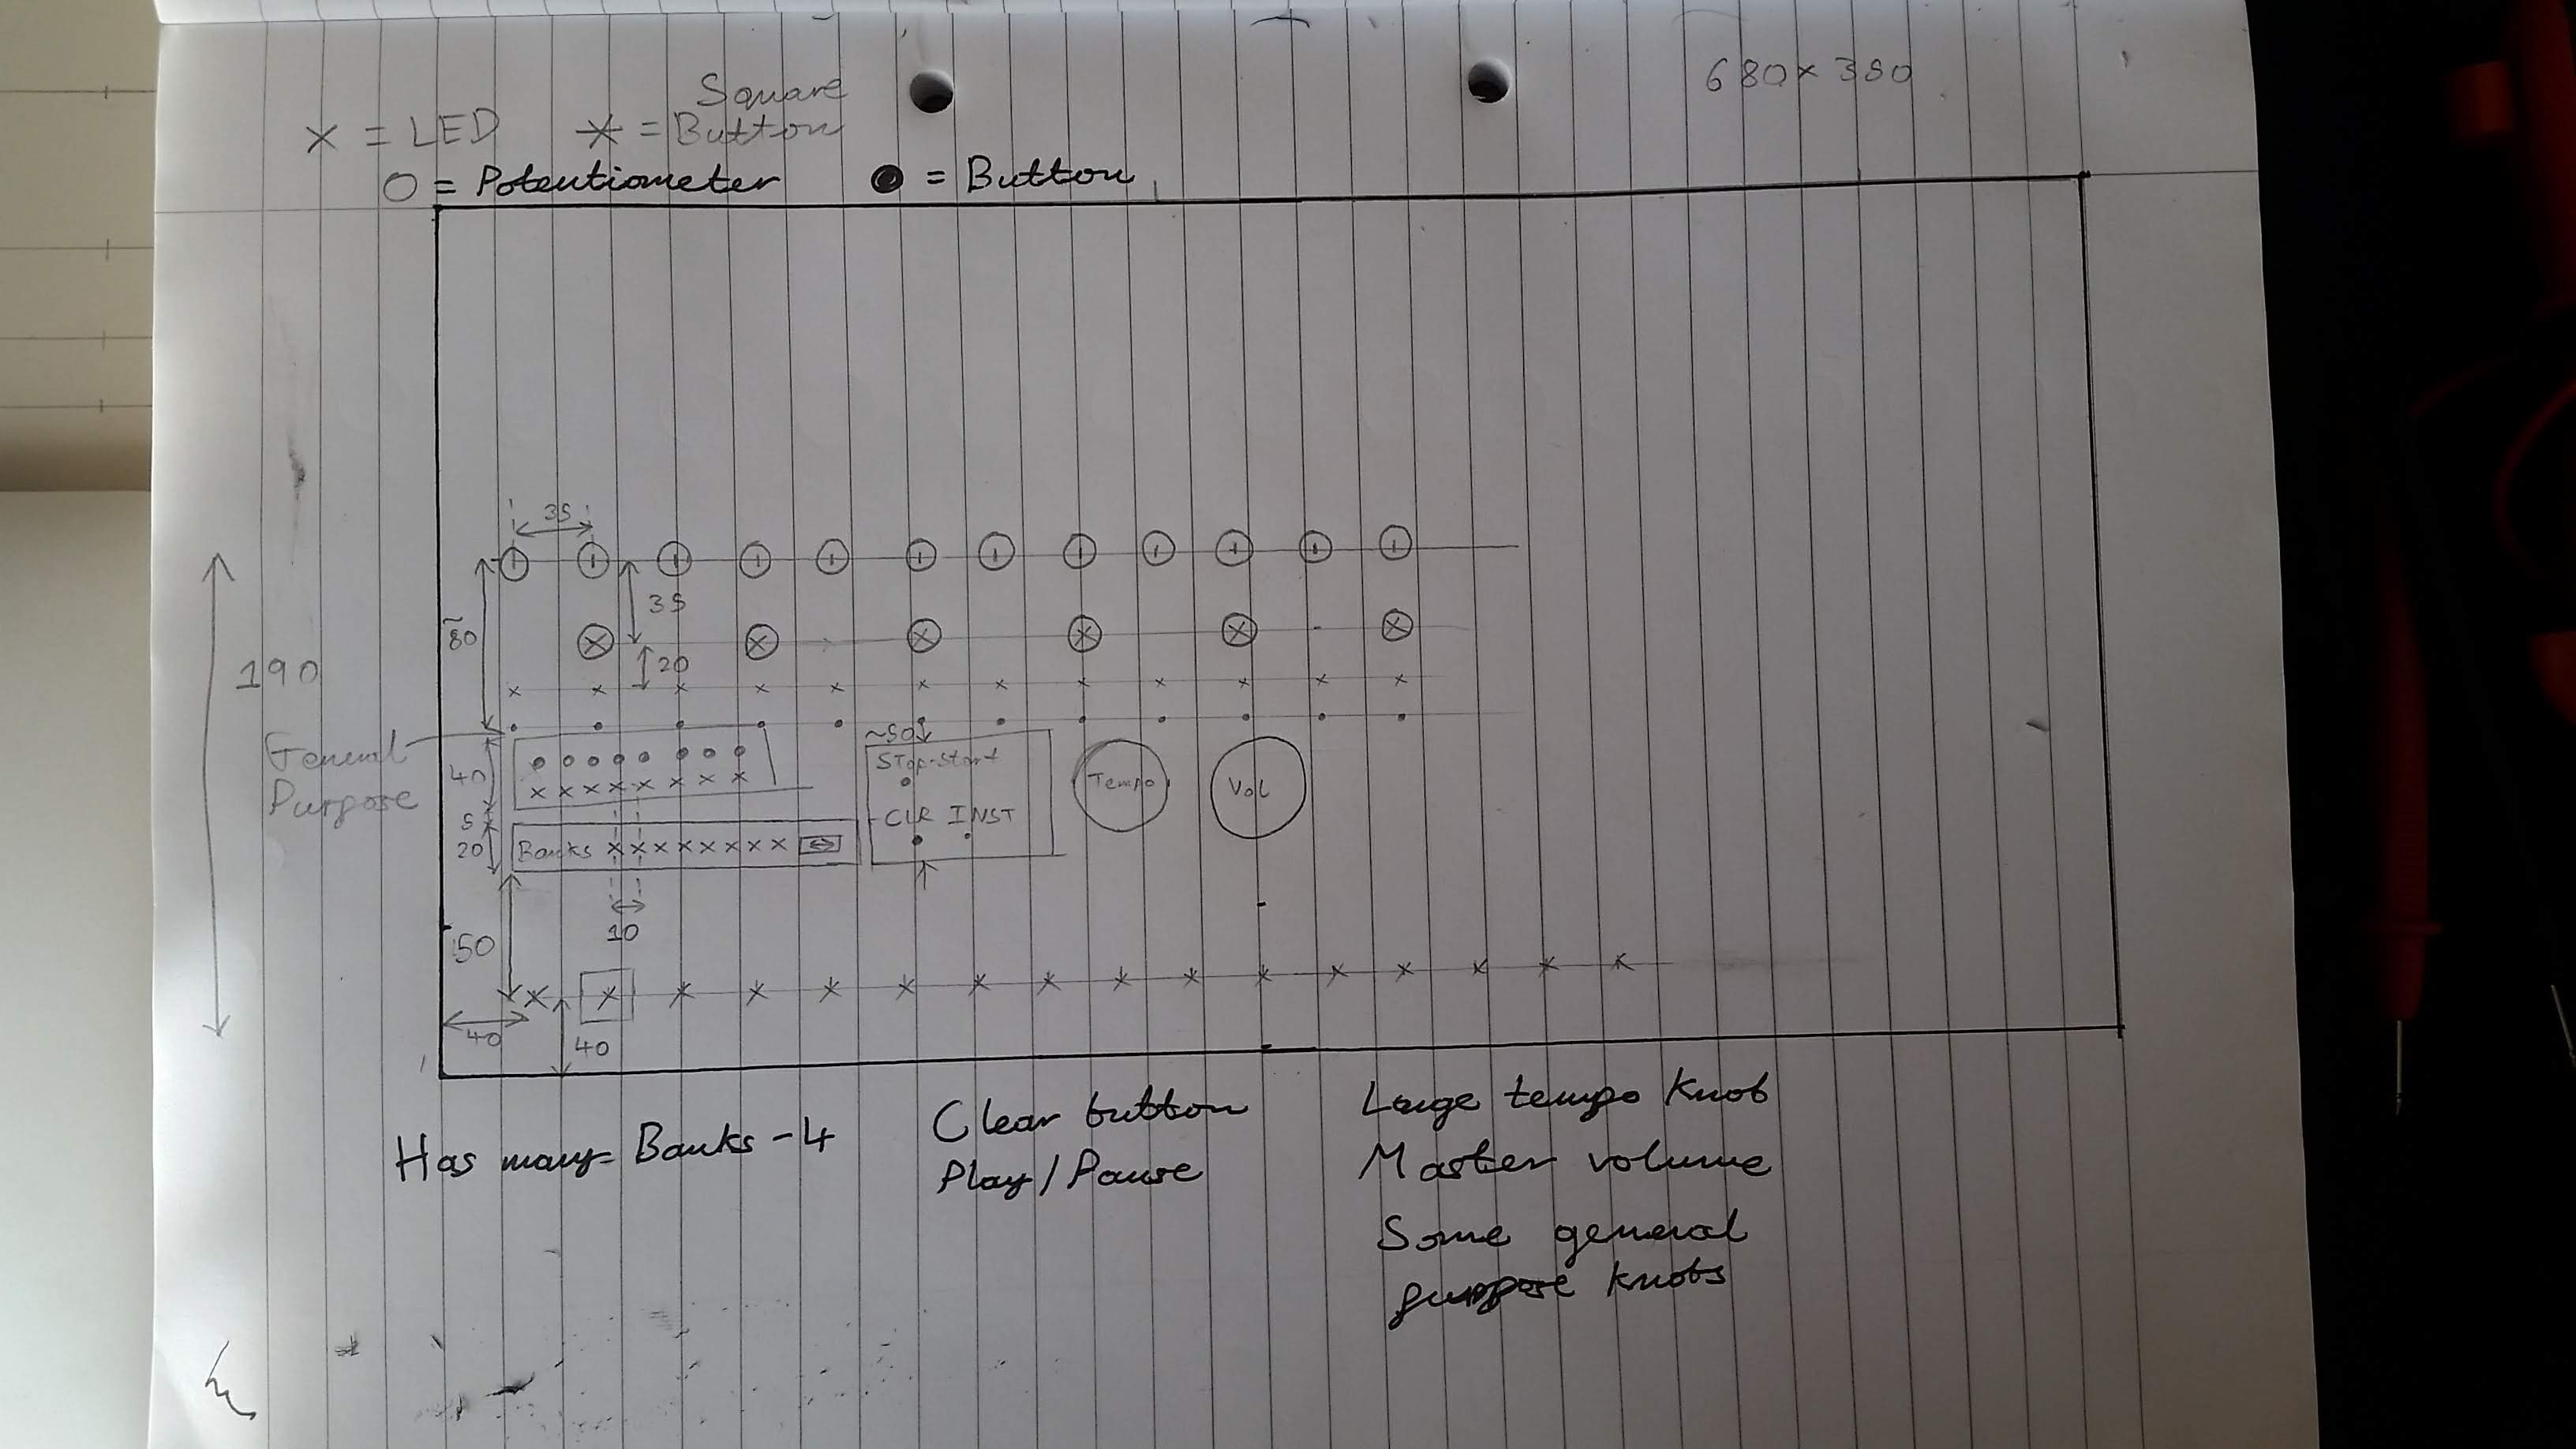 680×380
Square
× = LED ⚹ = Button
O = Potentiometer ● = Button
35
35
80
190
20
General
Purpose
~50
Stop-Start
40
Tempo
Vol
CLR INST
5
20
Banks
10
50
40
40
Has many = Banks - 4
Clear button
Play/Pause
Large tempo Knob
Master volume
Some general
purpose knobs